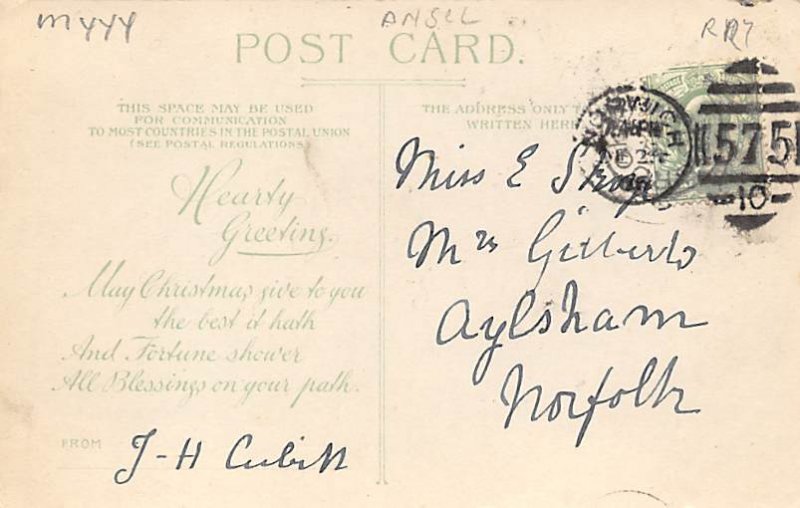 M444
ANSELL
RR7
POST CARD.
THIS SPACE MAY BE USED
FOR COMMUNICATION
TO MOST COUNTRIES IN THE POSTAL UNION
(SEE POSTAL REGULATIONS)
THE ADDRESS ONLY TO
WRITTEN HERE
NORWICH
575
10
Hearty
Greeting.
May Christmas give to you
the best it hath
And Fortune shower
All Blessings on your path.
FROM J-H Cubitt
Miss E
Mrs Gilberts
Aylsham
Norfolk